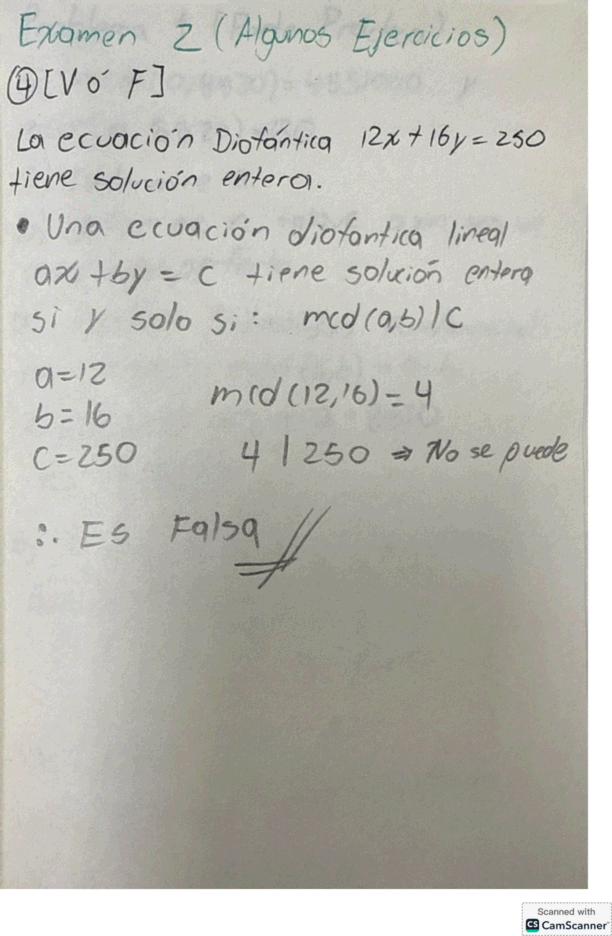 Examen 2 (Algunos Ejercicios)
④ [V ó F]
La ecuación Diofántica 12x + 16y = 250
tiene solución entera.
• Una ecuación diofantica lineal
ax + by = c tiene solución entera
si y solo si: mcd(a,b)|c
a=12
b=16
c=250
mcd(12,16)=4
4 | 250 ⇒ No se puede
∴ Es Falsa
Scanned with
CS CamScanner